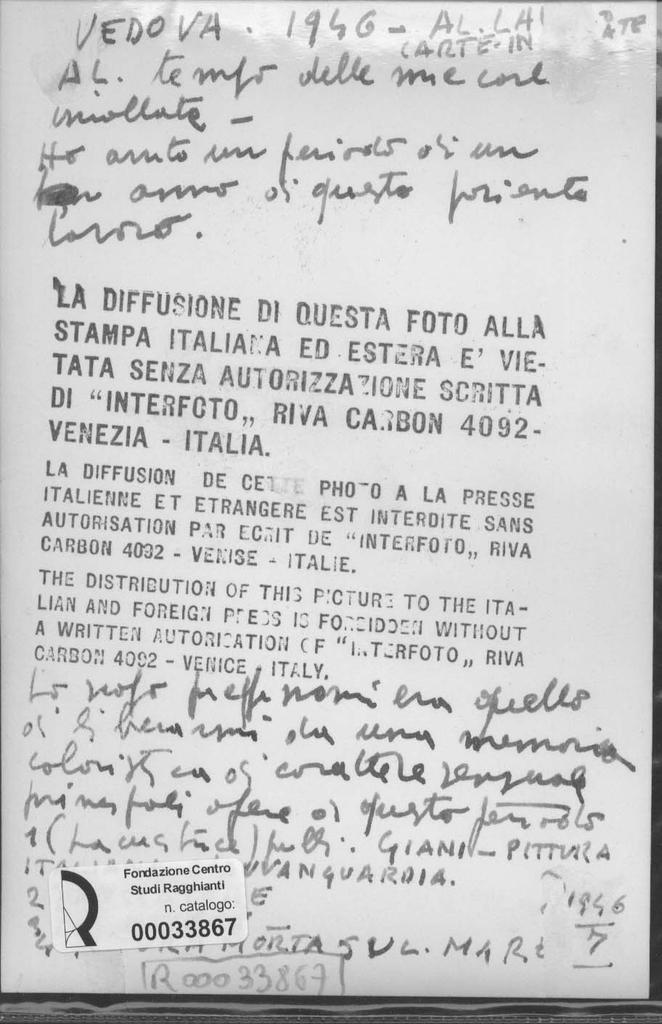 VEDOVA. 1946 - AL. LA'
CARTE-IN
AL. tempo delle mie cose
incollate -
Ho avuto un periodo di un
anno di questo paziente
lavoro.
LA DIFFUSIONE DI QUESTA FOTO ALLA
STAMPA ITALIANA ED ESTERA E' VIE-
TATA SENZA AUTORIZZAZIONE SCRITTA
DI "INTERFOTO„ RIVA CARBON 4092-
VENEZIA - ITALIA.
LA DIFFUSION DE CETTE PHOTO A LA PRESSE
ITALIENNE ET ETRANGERE EST INTERDITE SANS
AUTORISATION PAR ECRIT DE "INTERFOTO„ RIVA
CARBON 4092 - VENISE - ITALIE.
THE DISTRIBUTION OF THIS PICTURE TO THE ITA-
LIAN AND FOREIGN PRESS IS FORBIDDEN WITHOUT
A WRITTEN AUTORISATION OF "INTERFOTO„ RIVA
CARBON 4092 - VENICE - ITALY.
Lo scopo era quello
di liberarmi da una memoria
coloristica di carattere sensuale
principali opere di questo periodo
1 (La cucitrice) pubb. GIANI - PITTURA
VANGUARDIA.
2 E
MORTA SUL. MARE
1946
7
Fondazione Centro
Studi Ragghianti
n. catalogo:
00033867
R00033867